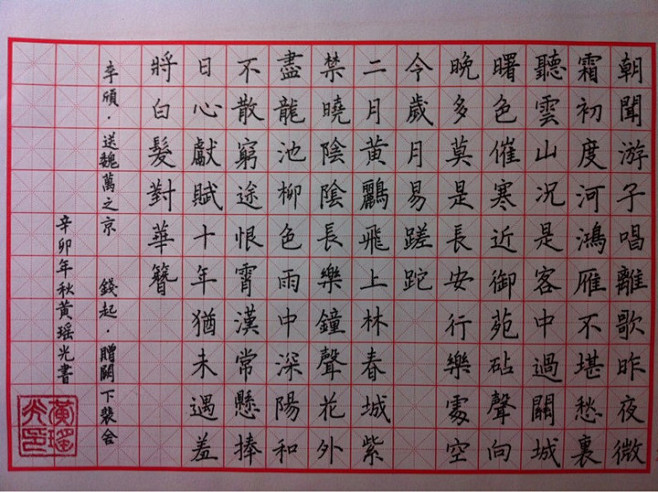 朝聞游子唱離歌昨夜微
霜初度河鴻雁不堪愁裏
聽雲山況是客中過關城
曙色催寒近御苑砧聲向
晚多莫是長安行樂處空
今歲月易蹉跎
二月黃鸝飛上林春城紫
禁曉陰陰長樂鐘聲花外
盡龍池柳色雨中深陽和
不散窮途恨霄漢常懸捧
日心獻賦十年猶未遇羞
將白髮對華簪
李頎·送魏萬之京 錢起·贈闕下裴舍
辛卯年秋黃瑤光書
黃瑤光印